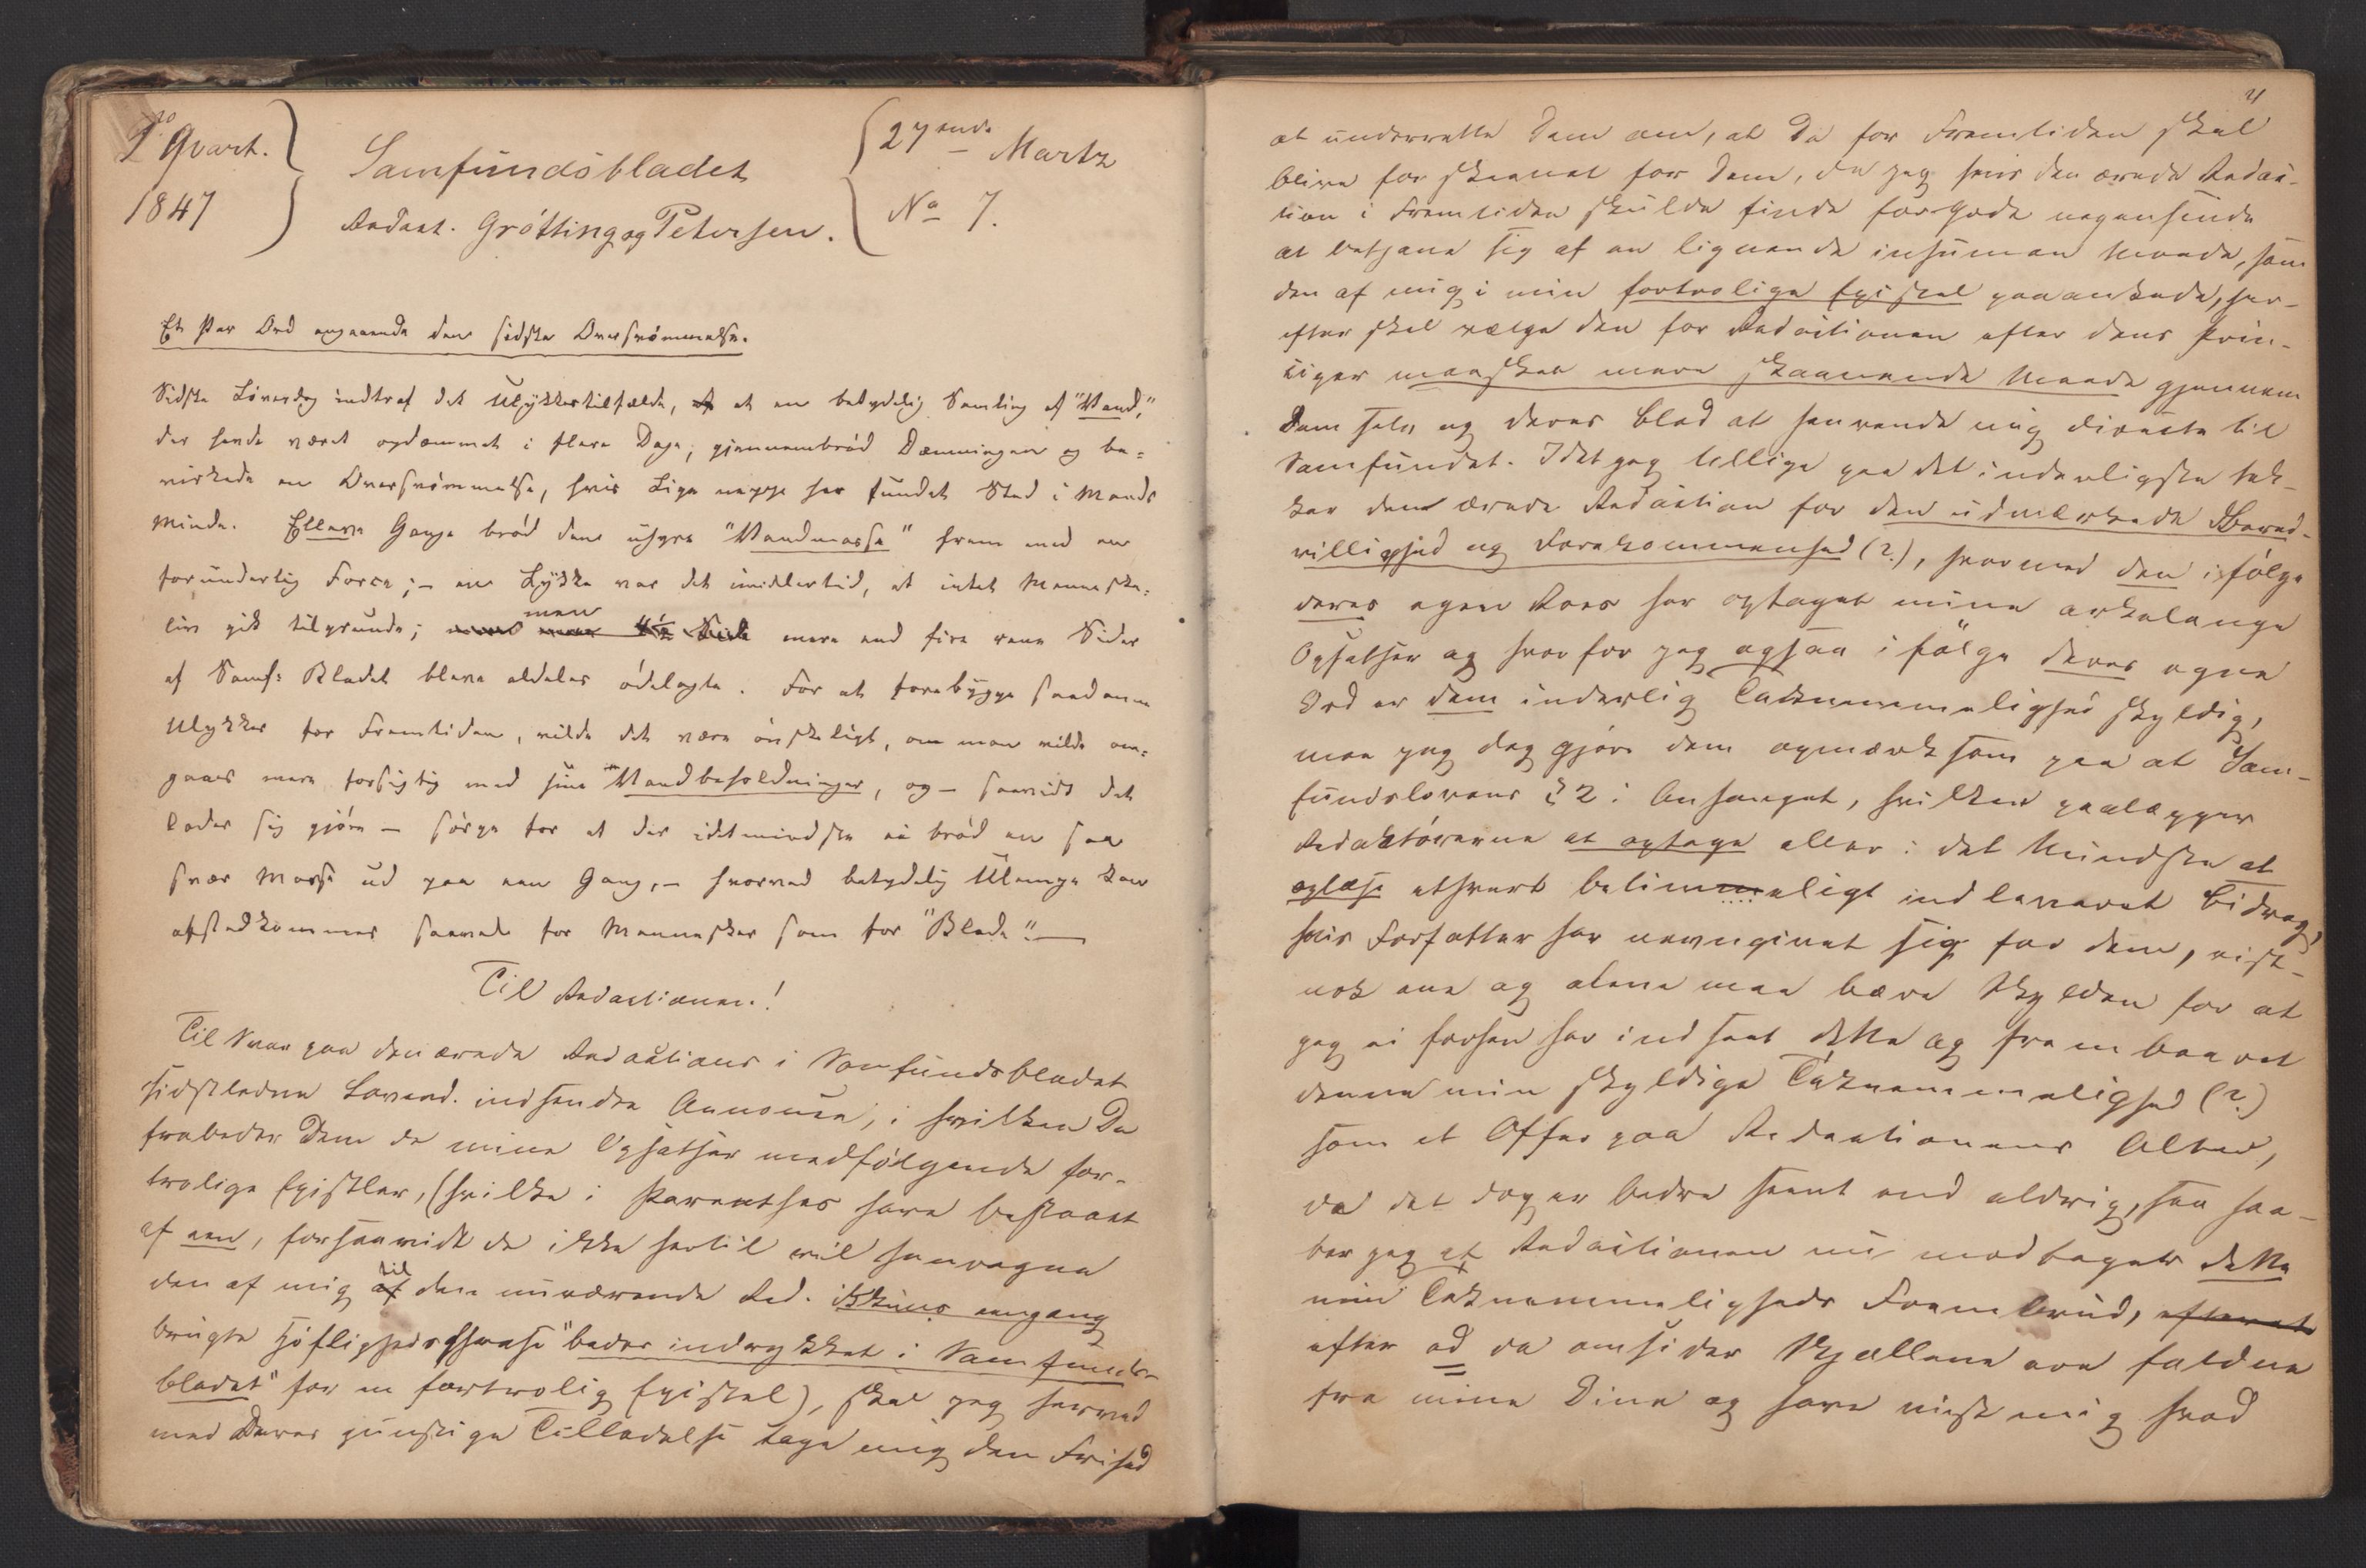 1ste Qvart.
1847
Samfundsbladet
Redact. Gröttting og Petersen.
27ende Martz
No 7.
Et Par Ord angaaende den sidste Oversvömmelse.
Sidste Löverdag indtraf det Ulykkestilfælde, at en betydelig Samling af "Vand,"
der havde været opdæmmet i flere Dage, gjennembröd Dæmningen og be=
virkede en Oversvömmelse, hvis Lige neppe har fundet Sted i Mands
Minde. Elleve Gange bröd den uhyre "Vandmasse" frem med en
forunderlig Force; – en Lykke var det imidlertid, at intet Menneske=
liv gik tilgrunde; men mere end fire rene Sider
af Samf: Bladet bleve aldeles ödelagte. For at forebygge saadanne
Ulykker for Fremtiden, vilde det være önskeligt, om man vilde om=
gaaes mere forsigtig med sine "Vandbeholdninger, og – saavidt det
lader sig gjöre – sörge for at der idetmindste ei bröd en saa
svær Masse ud paa een Gang, – hvorved betydelig Ulempe kan
afstedkommes saavel for Mennesker som for "Blade". –
Til Redactionen!
Til Svar paa den ærede Redactions i Samfundsbladet
sidstledne Löverd. indsendte Annonce, i hvilken De
frabeder Dem de mine Opsatser medfölgende for-
trolige Epistler, (hvilke i Parenthes have bestaaet
af een, forsaavidt de ikke hertil vil henregne
den af mig til den nuværende Red. ikkuns engang
brugte Höflighedsphrase "bedes indrykket i Samfunds-
bladet" for en fortrolig Epistel), skal jeg herved
med Deres gunstige Tilladelse tage mig den Frihed
4
at underrette Dem om, at De for Fremtiden skal
blive forskaanet for dem, da jeg hvis den ærede Redac-
tion i Fremtiden skulde finde for Gode nogensinde
at betjene sig af en lignende inhuman Maade, som
den af mig i min fortrolige Epistel paaankede, her-
efter skal vælge den for Redactionen efter dens Prin-
ciper maaskee mere skaanende Maade gjennem
Dem selv og deres Blad at henvende mig directe til
Samfundet. Idet jeg tillige paa det inderligste tak-
ker den ærede Redaction for den udmærkede Bered-
villighed og Forekommenhed (?), hvormed den ifölge
deres egen Roes har optaget mine arkelange
Opsatser og hvorfor jeg ogsaa ifölge deres egne
Ord er dem inderlig Taknemmelighed skyldig,
maa jeg dog gjöre dem opmærksom paa at Sam-
fundslovens § 2: Anhanget, hvilken paalægger
Redaktörerne at optage eller i det Mindste at
oplæse ethvert betimeligt indleveret Bidrag,
hvis Forfatter har navngivet sig for dem, vist-
nok ene og alene maa bære Skylden for at
jeg ei forhen har indseet dette og frembaaret
denne min skyldige Taknemmelighed (?)
som et Offer paa Redactionens Alter,
da det dog er bedre seent end aldrig, saa haa-
ber jeg at Redactionen nu modtager dette
min Taknemmeligheds Frembrud, efterat
efter ad da omsider Skjællene ere faldne
fra mine Öine og have viist mig hvad